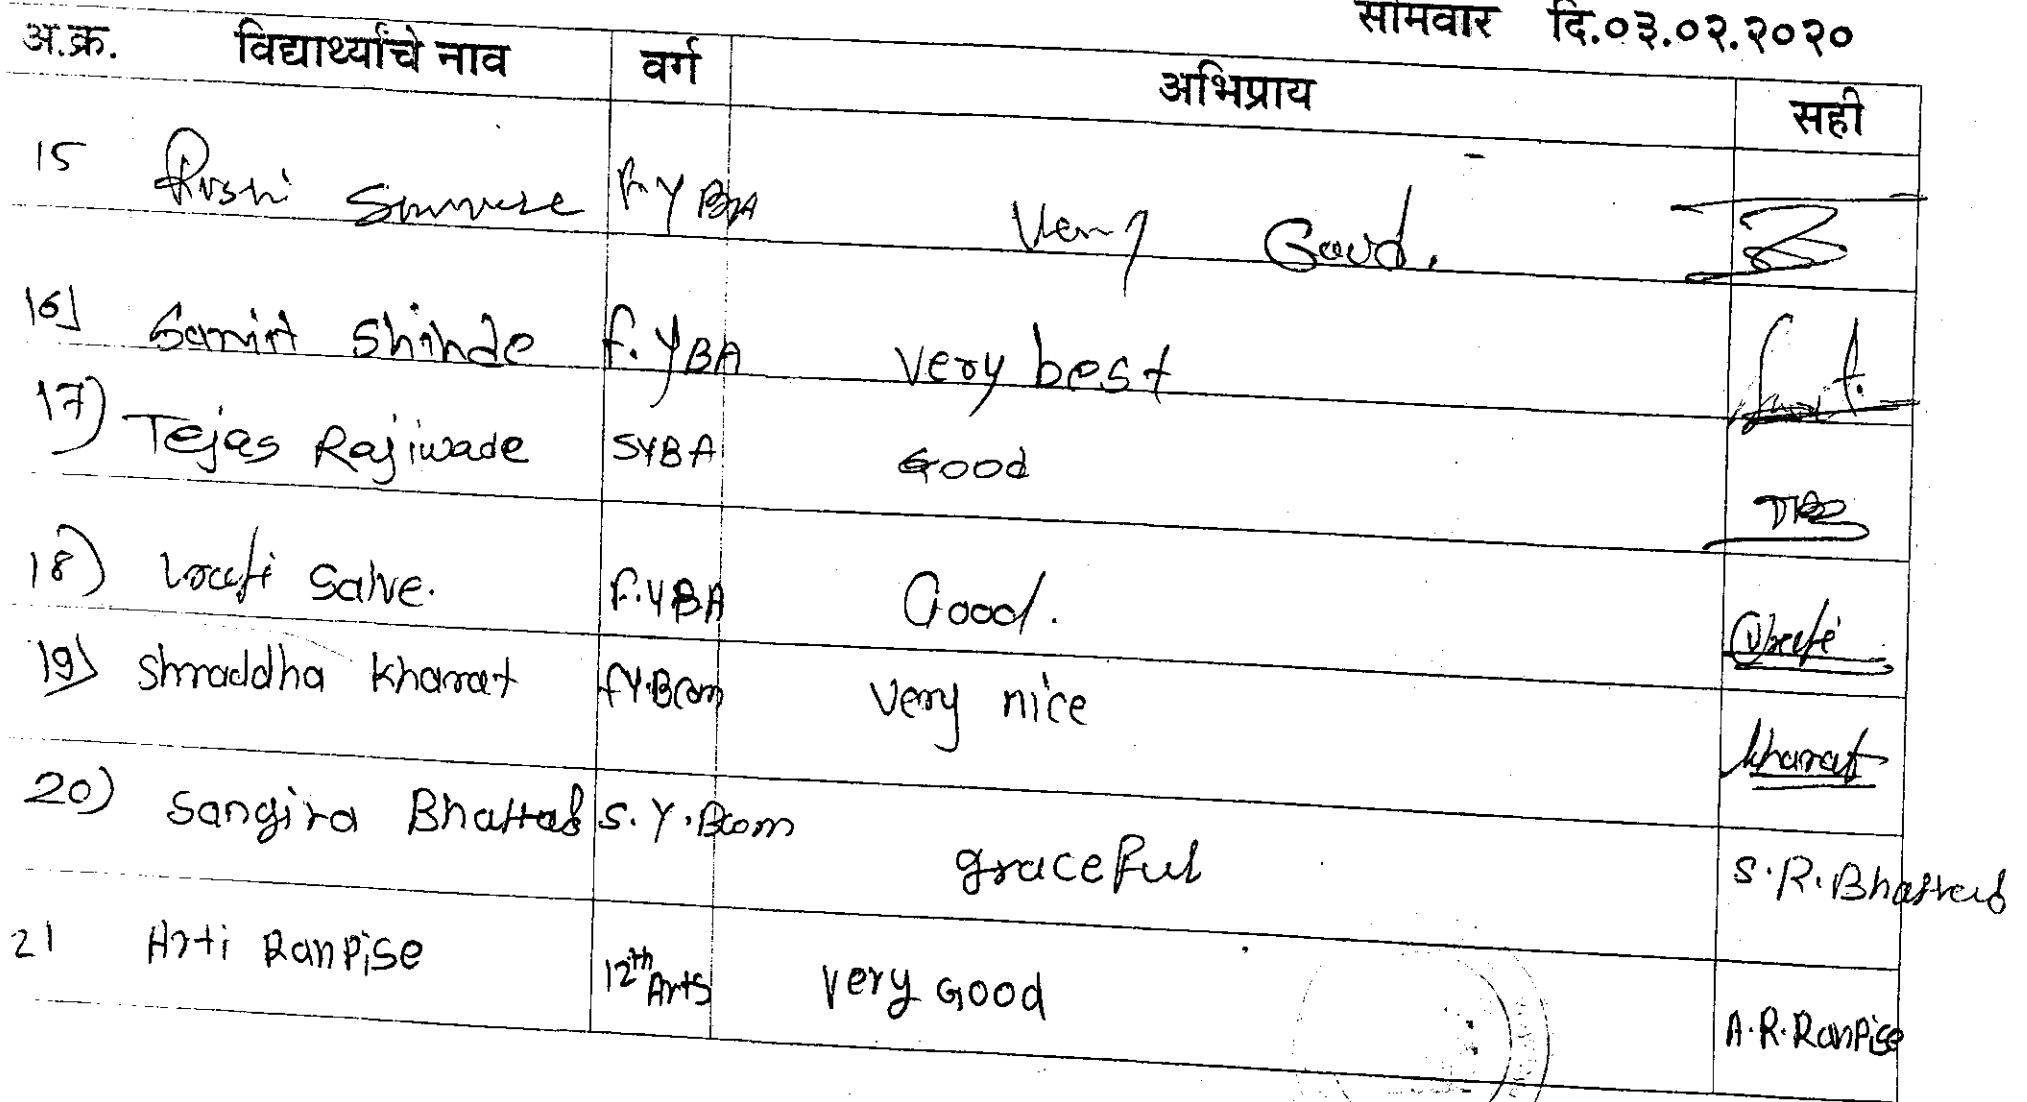 सोमवार दि.०३.०२.२०२०
अ.क्र. विद्यार्थ्यांचे नाव वर्ग अभिप्राय सही
15 Rushi F.Y BA Very Good.
16] Shinde F.Y BA very best
17) Tejas Rajiwade SYBA Good
18) Salve. F.Y BA Good.
19) Shraddha Kharat F.Y.Bcom very nice Kharat
20) Sangita S.Y.Bcom graceful S.R.
21 Arti Ranpise 12th Arts very Good A.R.Ranpise